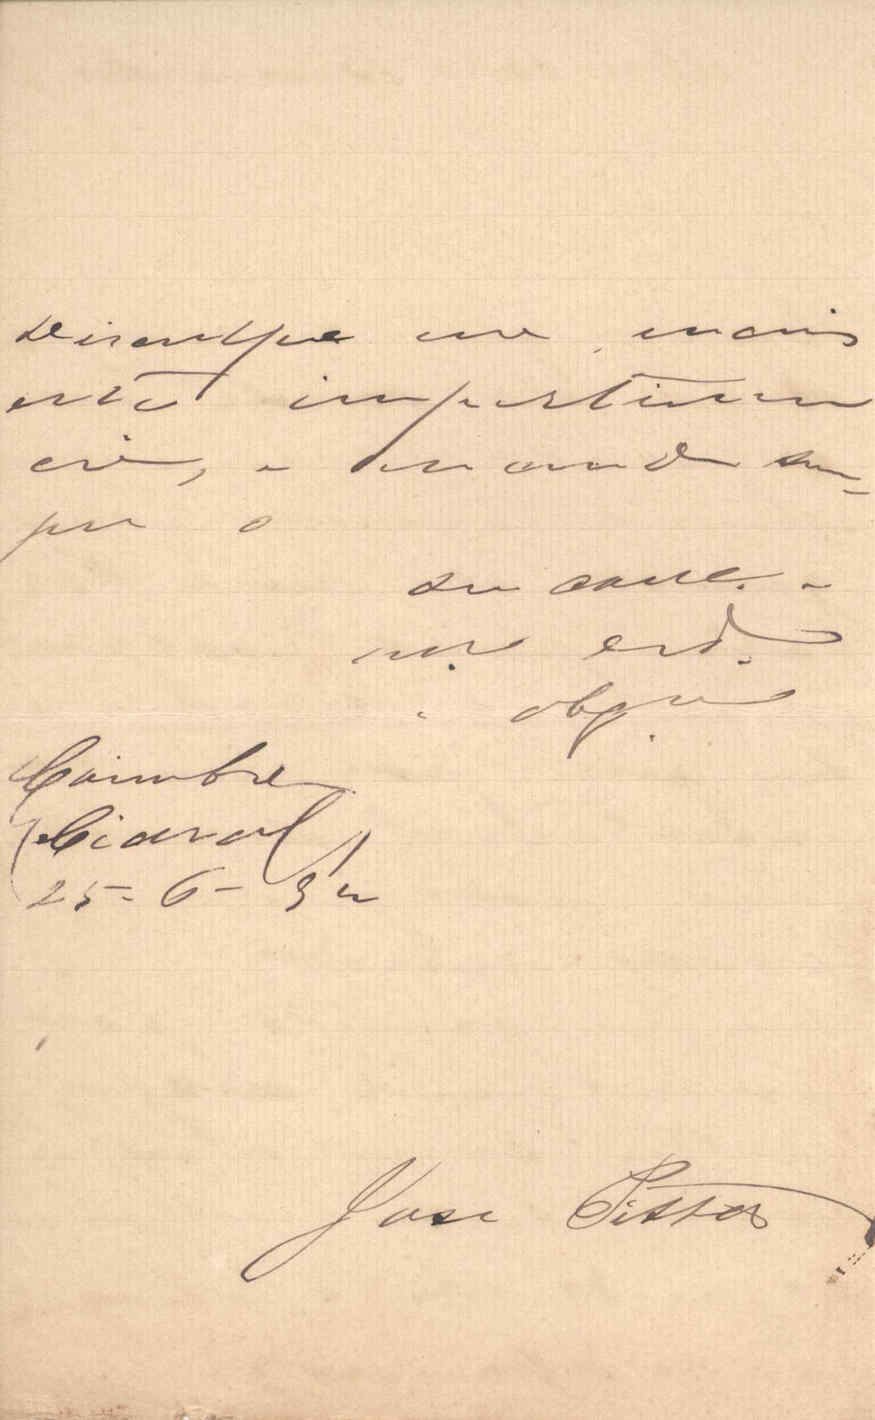 Desculpe me mais
esta impertinen
cia, e mande sem-
pre o
de casa e
mto
obgdo
Coimbra
Cidral
25-6-
José Pitta